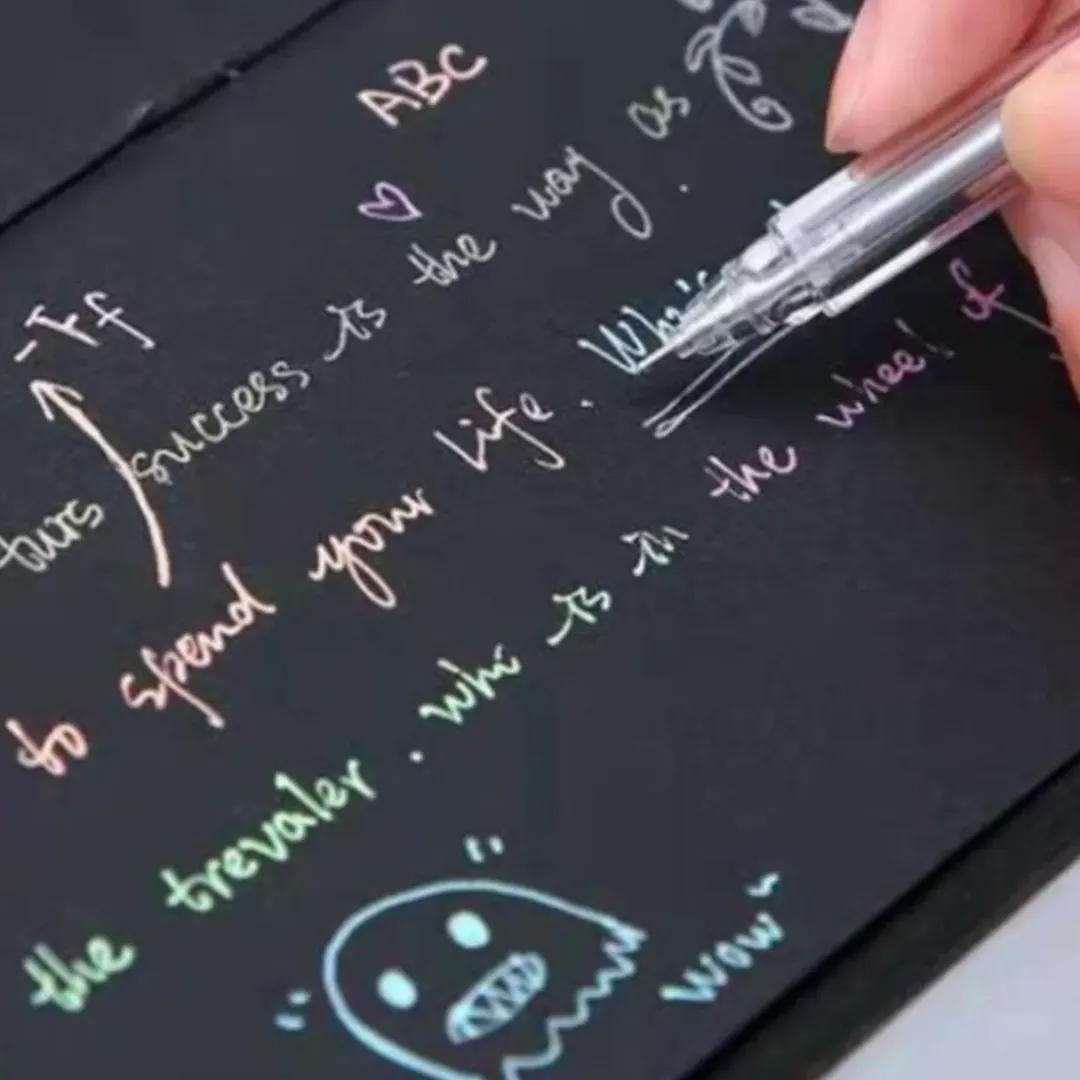 ABC
-Ff
this success is the way as
to spend your life. Who's
the trevaler. who is in the wheel of
"wow"